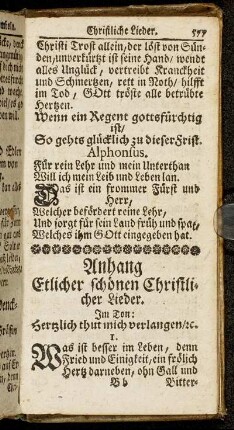 Christliche Lieder.
Christi Trost allein, der löst von Sün-
den/unverkürtzt ist seine Hand/ wendt
alles Unglück, vertreibt Kranckheit
und Schmertzen, rett in Noth/ hilfft
im Tod, GOtt tröste alle betrübte
Hertzen.
Wenn ein Regent gottsfürchtig
ist/
So gehts glücklich zu dieser Frist.
Alphonsus.
Für rein Lehr und mein Unterthan
Will ich mein Leib und Leben lan.
Das ist ein frommer Fürst und
Herr,
Welcher befördert reine Lehr,
Und sorgt für sein Land früh und spat,
Welches ihm GOtt eingegeben hat.
Anhang
Etlicher schönen Christli-
cher Lieder.
Im Ton:
Hertzlich thut mich verlangen/ꝛc.
1.
Was ist besser im Leben, denn
Fried und Einigkeit, ein frölich
Hertz darneben, ohn Gall und
Bb Bitter-